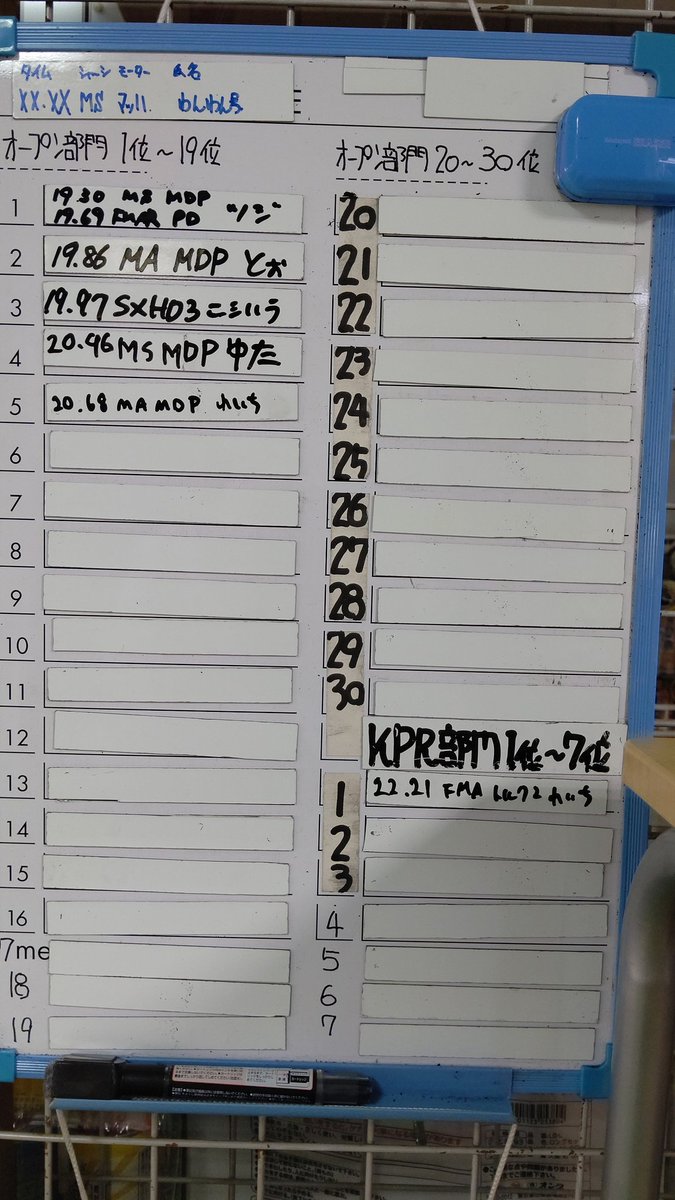 タイム シャーシ モーター 氏名
XX.XX MS マッハ わんわん号
オープン部門 1位~19位
1 19.30 MS MDP
19.69 FMAR PD "ソジ"
2 19.86 MA MDP とお
3 19.97 SXH03 ニミハラ
4 20.46 MS MDP ゆた
5 20.68 MA MDP れいち
6
7
8
9
10
11
12
13
14
15
16
7me
18
19
オープン部門 20~30位
20
21
22
23
24
25
26
27
28
29
30
KPR部門 1位~7位
1 22.21 FMA れいち
2
3
4
5
6
7